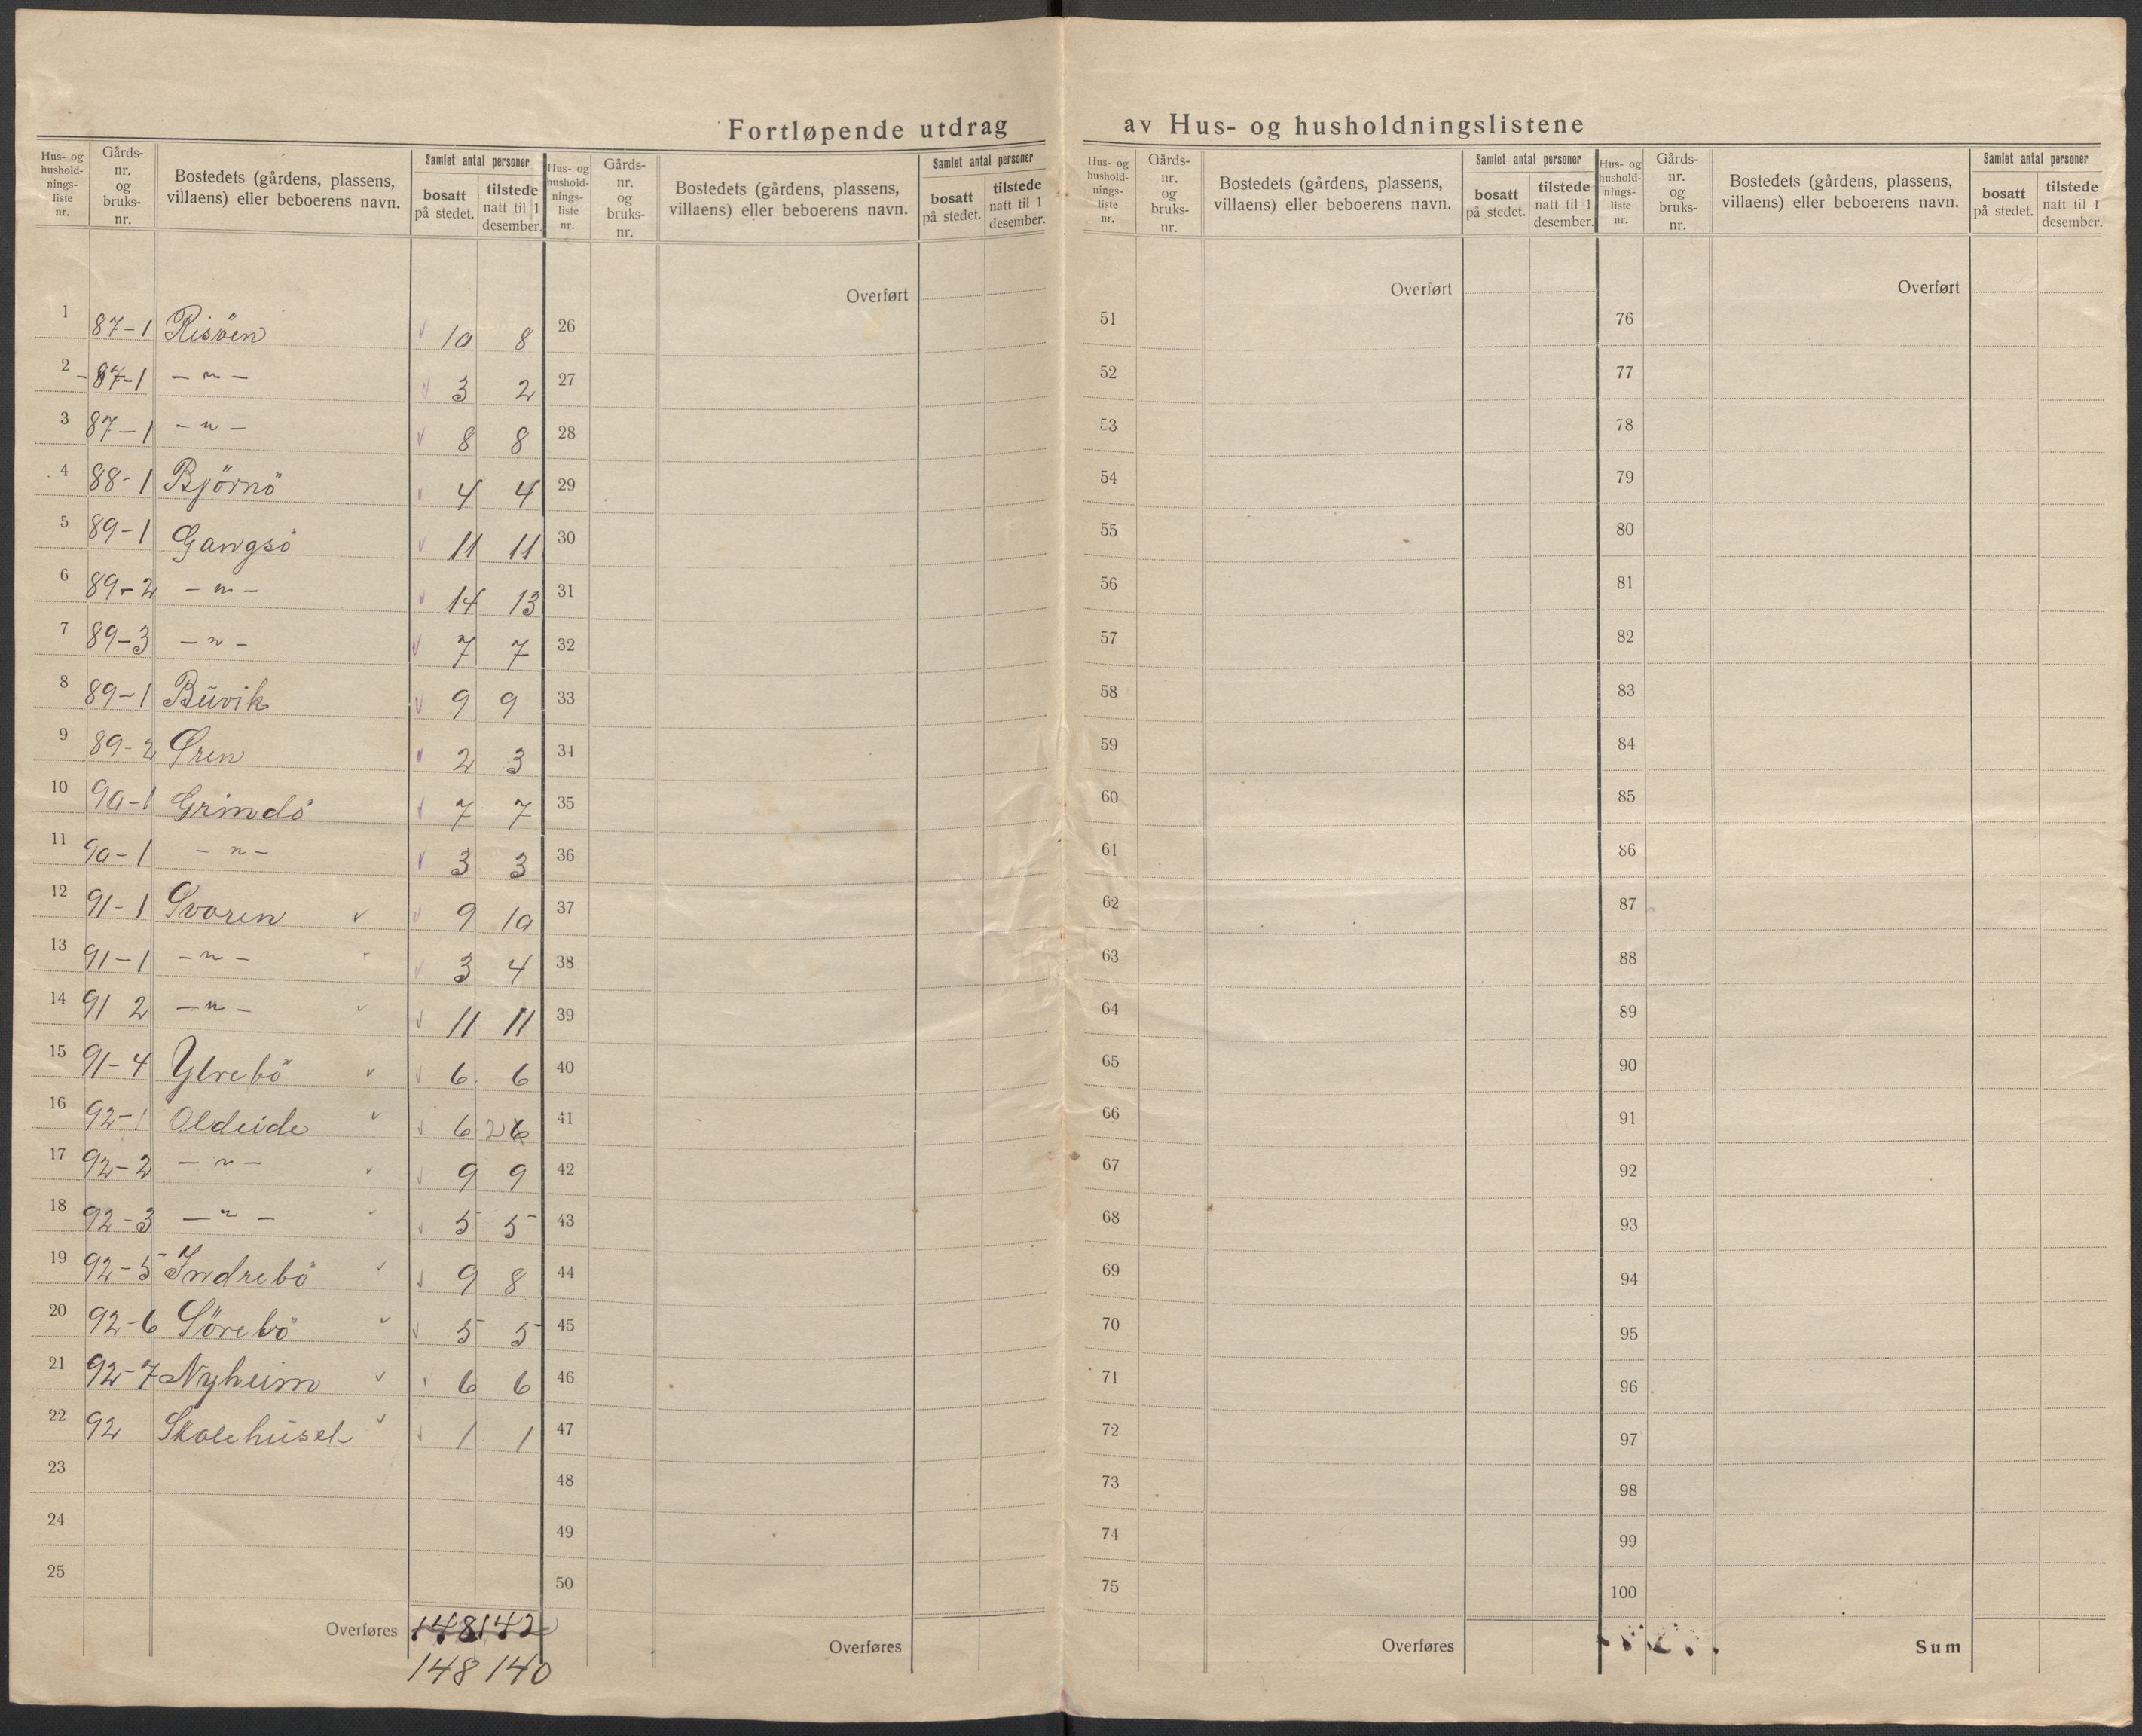 Fortløpende utdrag av Hus- og husholdningslistene
Hus- og hushold-nings-liste nr. Gårds-nr. og bruks-nr. Bostedets (gårdens, plassens, villaens) eller beboerens navn. Samlet antal personer bosatt på stedet. tilstede natt til 1 desember.
1 87-1 Risöen 10 8
2 -87-1 -"- 3 2
3 87-1 -"- 8 8
4 88-1 Björnö 4 4
5 89-1 Gangsö 11 11
6 89-2 -"- 14 13
7 89-3 -"- 7 7
8 89-1 Buvik 9 9
9 89-2 Øren 2 3
10 90-1 Grindö 7 7
11 90-1 -"- 3 3
12 91-1 Svoren 9 10
13 91-1 -"- 3 4
14 91 2 -"- 11 11
15 91-4 Ytrebö 6 6
16 92-1 Oldeide 6 2 6
17 92-2 -"- 9 9
18 92-3 -"- 5 5
19 92-5 Indrebö 9 8
20 92-6 Sörebö 5 5
21 92-7 Nyheim 6 6
22 92 Skolehuset 1 1
23
24
25
Overføres 148 142
148 140
Hus- og hushold-nings-liste nr. Gårds-nr. og bruks-nr. Bostedets (gårdens, plassens, villaens) eller beboerens navn. Samlet antal personer bosatt på stedet. tilstede natt til 1 desember.
Overført
26
27
28
29
30
31
32
33
34
35
36
37
38
39
40
41
42
43
44
45
46
47
48
49
50
Overføres
Hus- og hushold-nings-liste nr. Gårds-nr. og bruks-nr. Bostedets (gårdens, plassens, villaens) eller beboerens navn. Samlet antal personer bosatt på stedet. tilstede natt til 1 desember.
Overført
51
52
53
54
55
56
57
58
59
60
61
62
63
64
65
66
67
68
69
70
71
72
73
74
75
Overføres
Hus- og hushold-nings-liste nr. Gårds-nr. og bruks-nr. Bostedets (gårdens, plassens, villaens) eller beboerens navn. Samlet antal personer bosatt på stedet. tilstede natt til 1 desember.
Overført
76
77
78
79
80
81
82
83
84
85
86
87
88
89
90
91
92
93
94
95
96
97
98
99
100
Sum